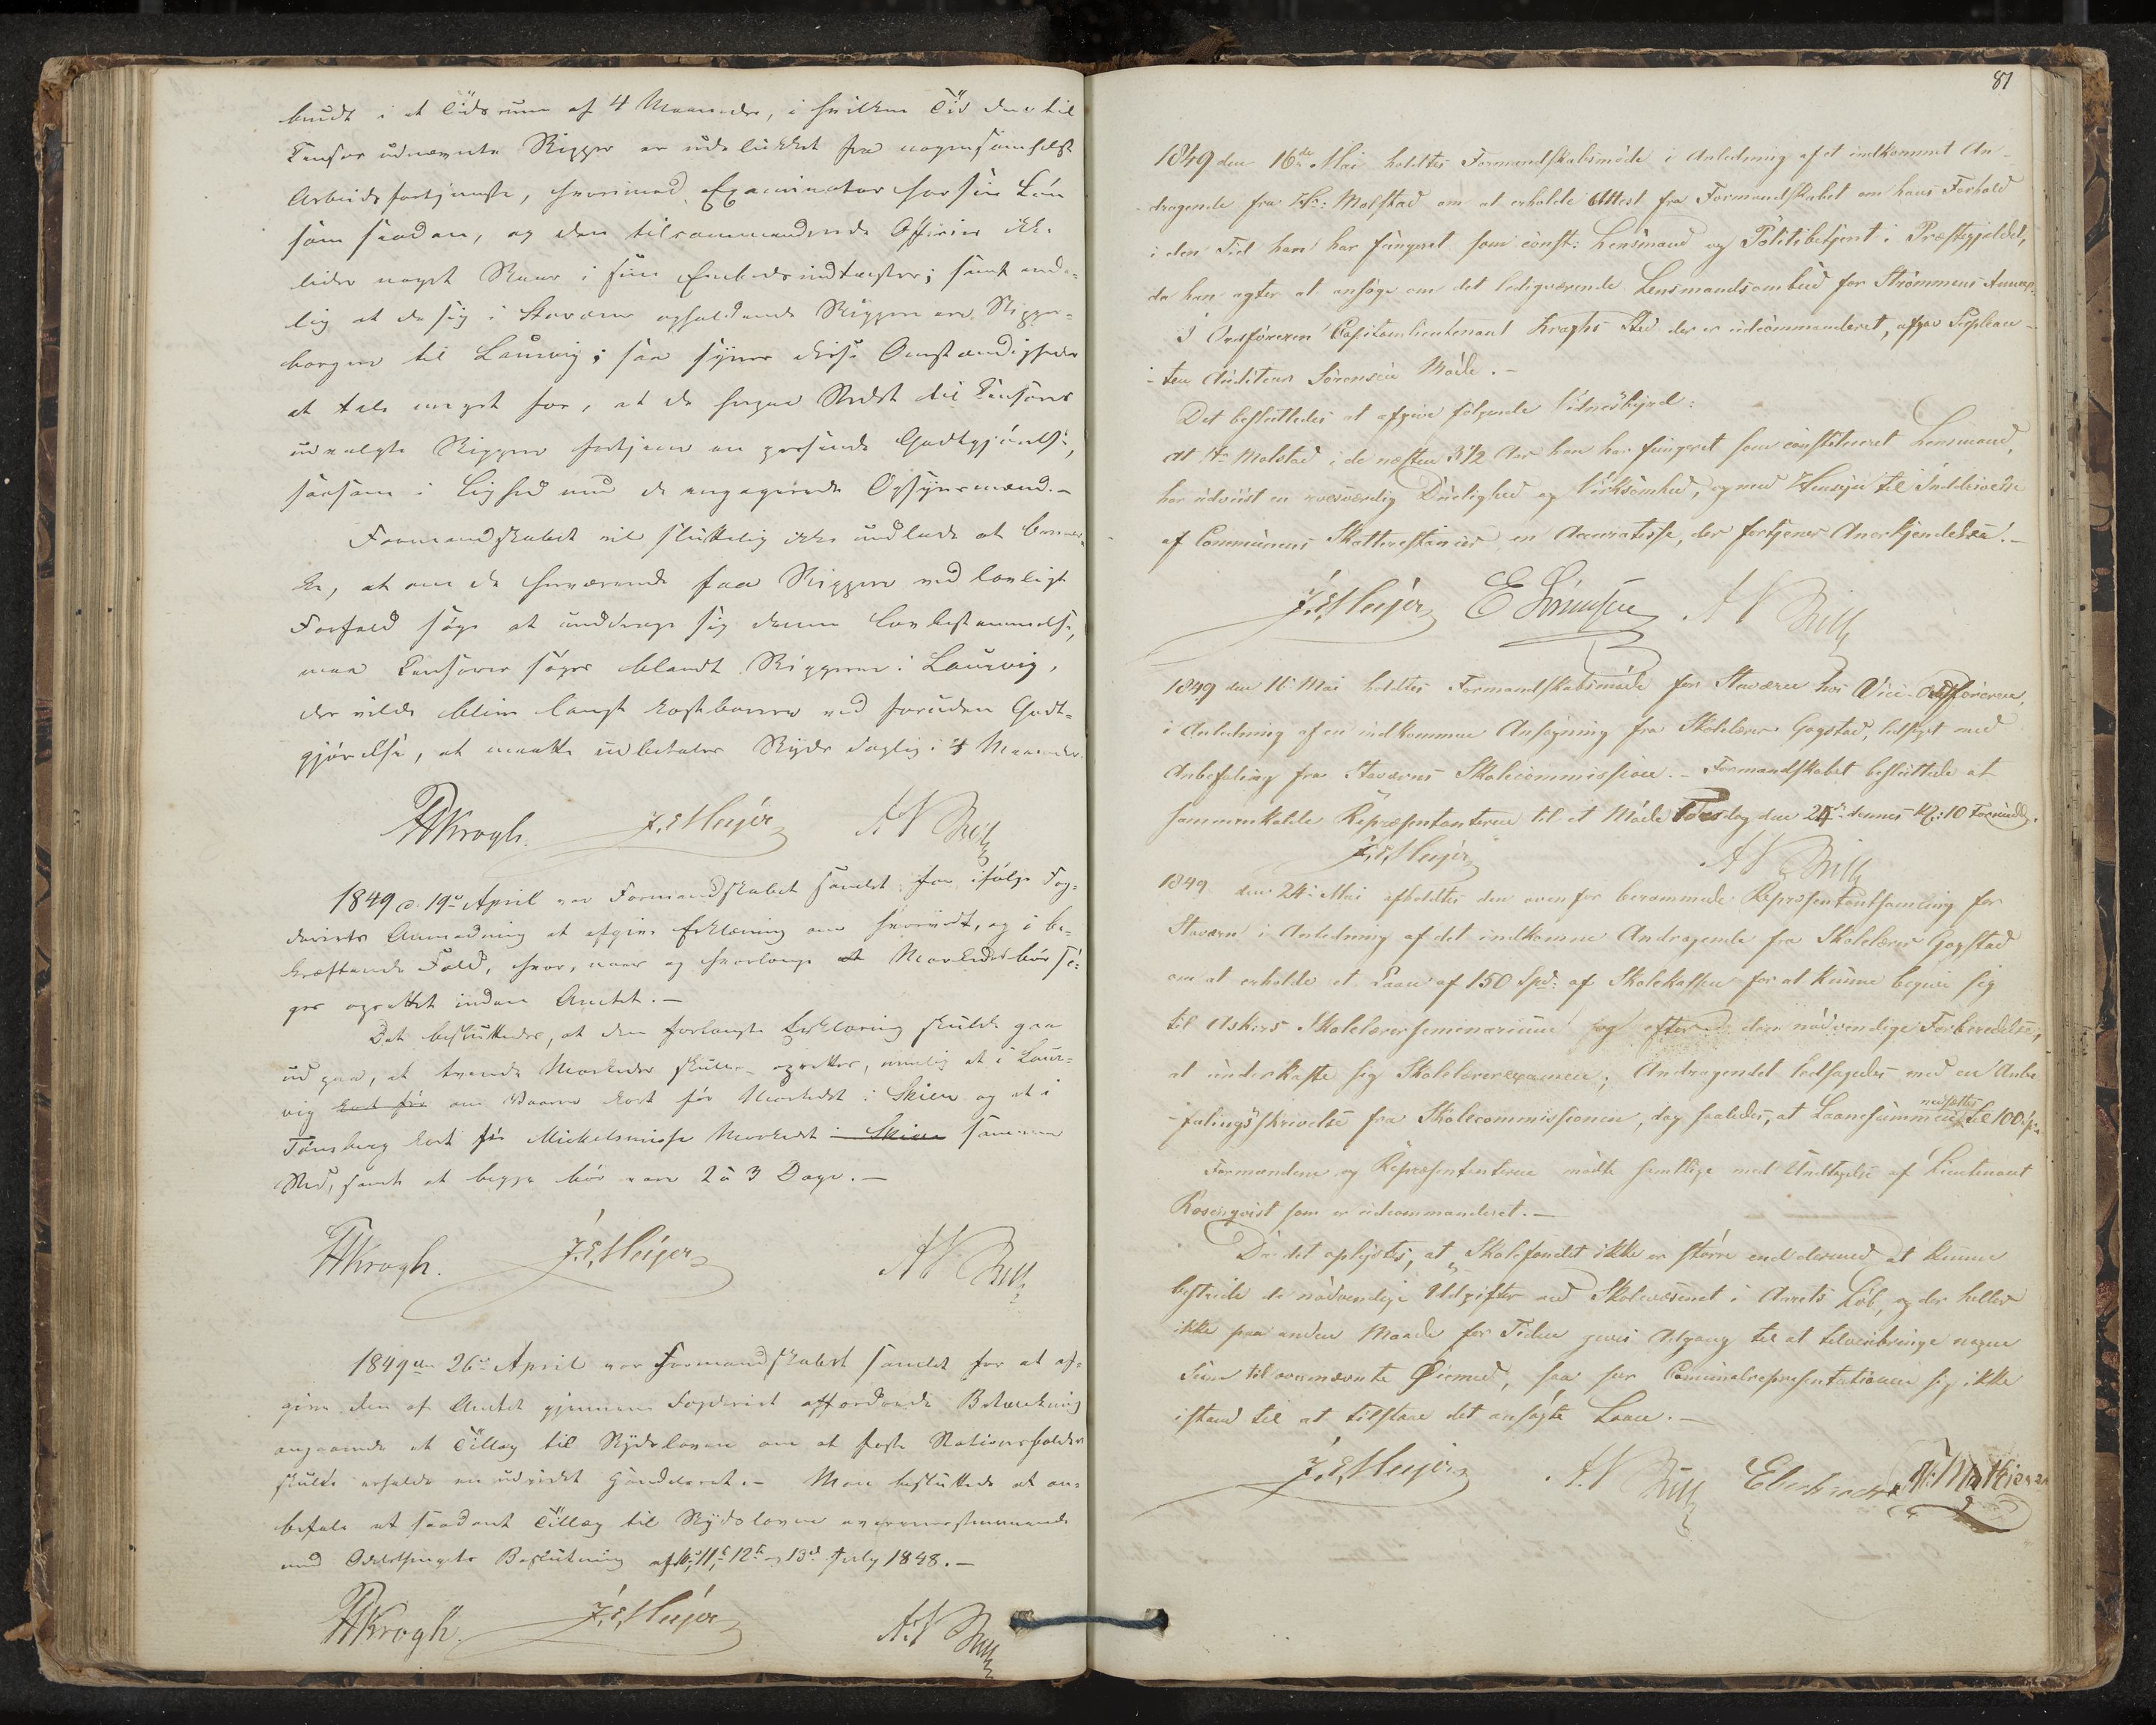 bundt i et Tidsrum af 4 Maaneder, i hvilken Tid den til
Censor udnævnte Skipper er udelukket fra nogensomhelst
Arbeidsfortjeneste, hvorimod Examinator har sin Løn
som saadan, og den tilcommanderede Officier ikke
lider noget Skaar i sine Embedsindtægter; samt ende-
lig at de sig i Staværn opholdende Skippere ere Skipper-
borgere til Laurvig; saa synes disse Omstændigheder
at tale meget for, at de herpaa Stedet til Censorer
udvalgte Skippere fortjene en passende Godtgjørelse,
saasom i Lighed med de engagerede Opsynsmænd.-
Formandskabet vil sluttelig ikke undlade at bemær-
ke, at om de herværende faa Skippere ved lovligt
Forfald søge at unddrage sig denne Lovbestemmelse,
maa Censorer søges blandt Skipperne i Laurvig,
der vilde blive langt kostbarere ved foruden Godt-
gjørelse, at maatte udbetales Skyds daglig i 4 Maaneder.
Krogh. J. E. Meijer A N
1849 d. 19de April var Formandskabet samlet for ifølge Fog-
deriets Anmodning at afgive Erklæring om hvorvidt, og i be-
kræftende Fald, hvor, naar og hvorlænge et Marked bør sø-
ges oprettet inden Amtet.-
Det besluttedes, at den forlangte Erklæring skulde gaa
ud paa, at tvende Markeder skulle oprettes, nemlig et i Laur-
vig kort før om Vaaren kort før Markedet i Skien og et i
Tønsberg kort før Mickelsmisse Markedet i Skien samme
Sted, samt at begge bør vare 2 à 3 Dage.-
Krogh. J. E. Meijer A N
1849 den 26de April var Formandskabet samlet for at af-
give den af Amtet gjennem Fogderiet affordrede Betænkning
angaaende et Tillæg til Skydsloven om at faste Stationsholdere
skulde erholde en udvidet Handelsret.- Man besluttede at an-
befale et saadant Tillæg til Skydsloven overensstemmende
med Odelsthingets Beslutning af 11te, 12te og 13de July 1848.-
Krogh. J. E. Meijer A. N
81
1849 den 16de Mai holdtes Formandskabsmøde i Anledning af et indkommet An-
dragende fra Hr: Molstad om at erholde Attest fra Formandskabet om hans Forhold
i den Tid han har fungeret som const: Lensmand og Politibetjent i Præstegjeldet,
da han agter at ansøge om det ledigværende Lensmandsombud for Strømmens Annex.
I Ordførerens Capitainlieutenant Kroghs Sted der er udcommanderet, afgav Suplean-
-ten Auditeur Sørensen Møde.-
Det besluttedes at afgive følgende Vidnesbyrd:
At Hr Molstad i de næsten 3 1/2 Aar han har fungeret som constitueret Lensmand,
har udviist en roesværdig Duelighed og Virksomhed, og med Hensyn til Inddrivelse
af Communens Skatterestancer en Accuratesse, der fortjener Anerkjendelse.-
J. E. Meijer E Sørensen A N
1849 den 16 Mai holdtes Formandskabsmøde for Staværn hos Vice-Ordføreren,
i Anledning af en indkommen Ansøgning fra Skolelærer Gogstad, ledsaget med
Anbefaling fra Staværns Skolecommission.- Formandskabet besluttede at
sammenkalde Repræsentanterne til et Møde Torsdag den 24de dennes Kl: 10 Formidd.
J. E. Meijer A N
1849 den 24de Mai afholdtes den ovenfor berammede Repræsentantsamling for
Staværn i Anledning af det indkomne Andragende fra Skolelærer Gogstad
om at erholde et Laan af 150 Spd: af Skolekassen for at kunne begive sig
til Askers Skolelærerseminarium og efter den nødvendige Forberedelse,
at underkaste sig Skolelærerexamen; Andragendet ledsagedes med en Anbe
-falingsskrivelse fra Skolecommissionen, dog saaledes, at Laanesummen nedsattes til 100 Spd.
Formændene og Repræsentanterne mødte samtlige med Undtagelse af Lieutenant
Rosenqvist som er udcommanderet.-
Da det oplystes, at Skolefondet ikke er større end dermed at kunne
bestride de nødvendige Udgifter ved Skolevæsenet i Aarets Løb, og der heller
ikke paa anden Maade for Tiden gives Adgang til at tilveiebringe nogen
Sum til ovennævnte Øiemed, saa saa Communalrepresentationen sig ikke
istand til at tilstaae det ansøgte Laan.-
J. E. Meijer A. N